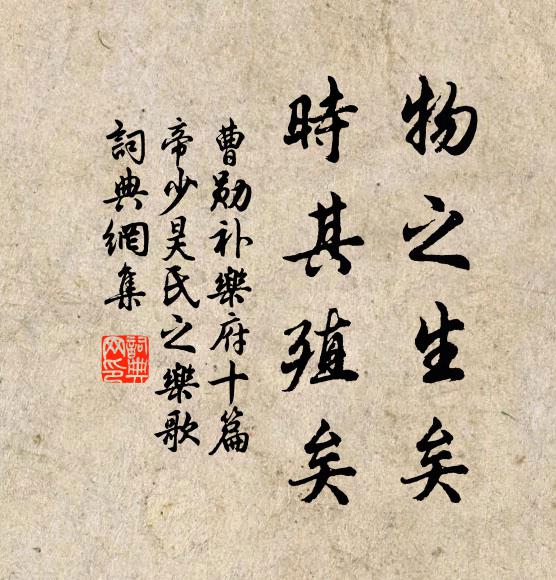 物之生矣
時其殖矣
曹勛补樂府十篇
帝少昊氏之樂歌
詞典網集
詞典
网印